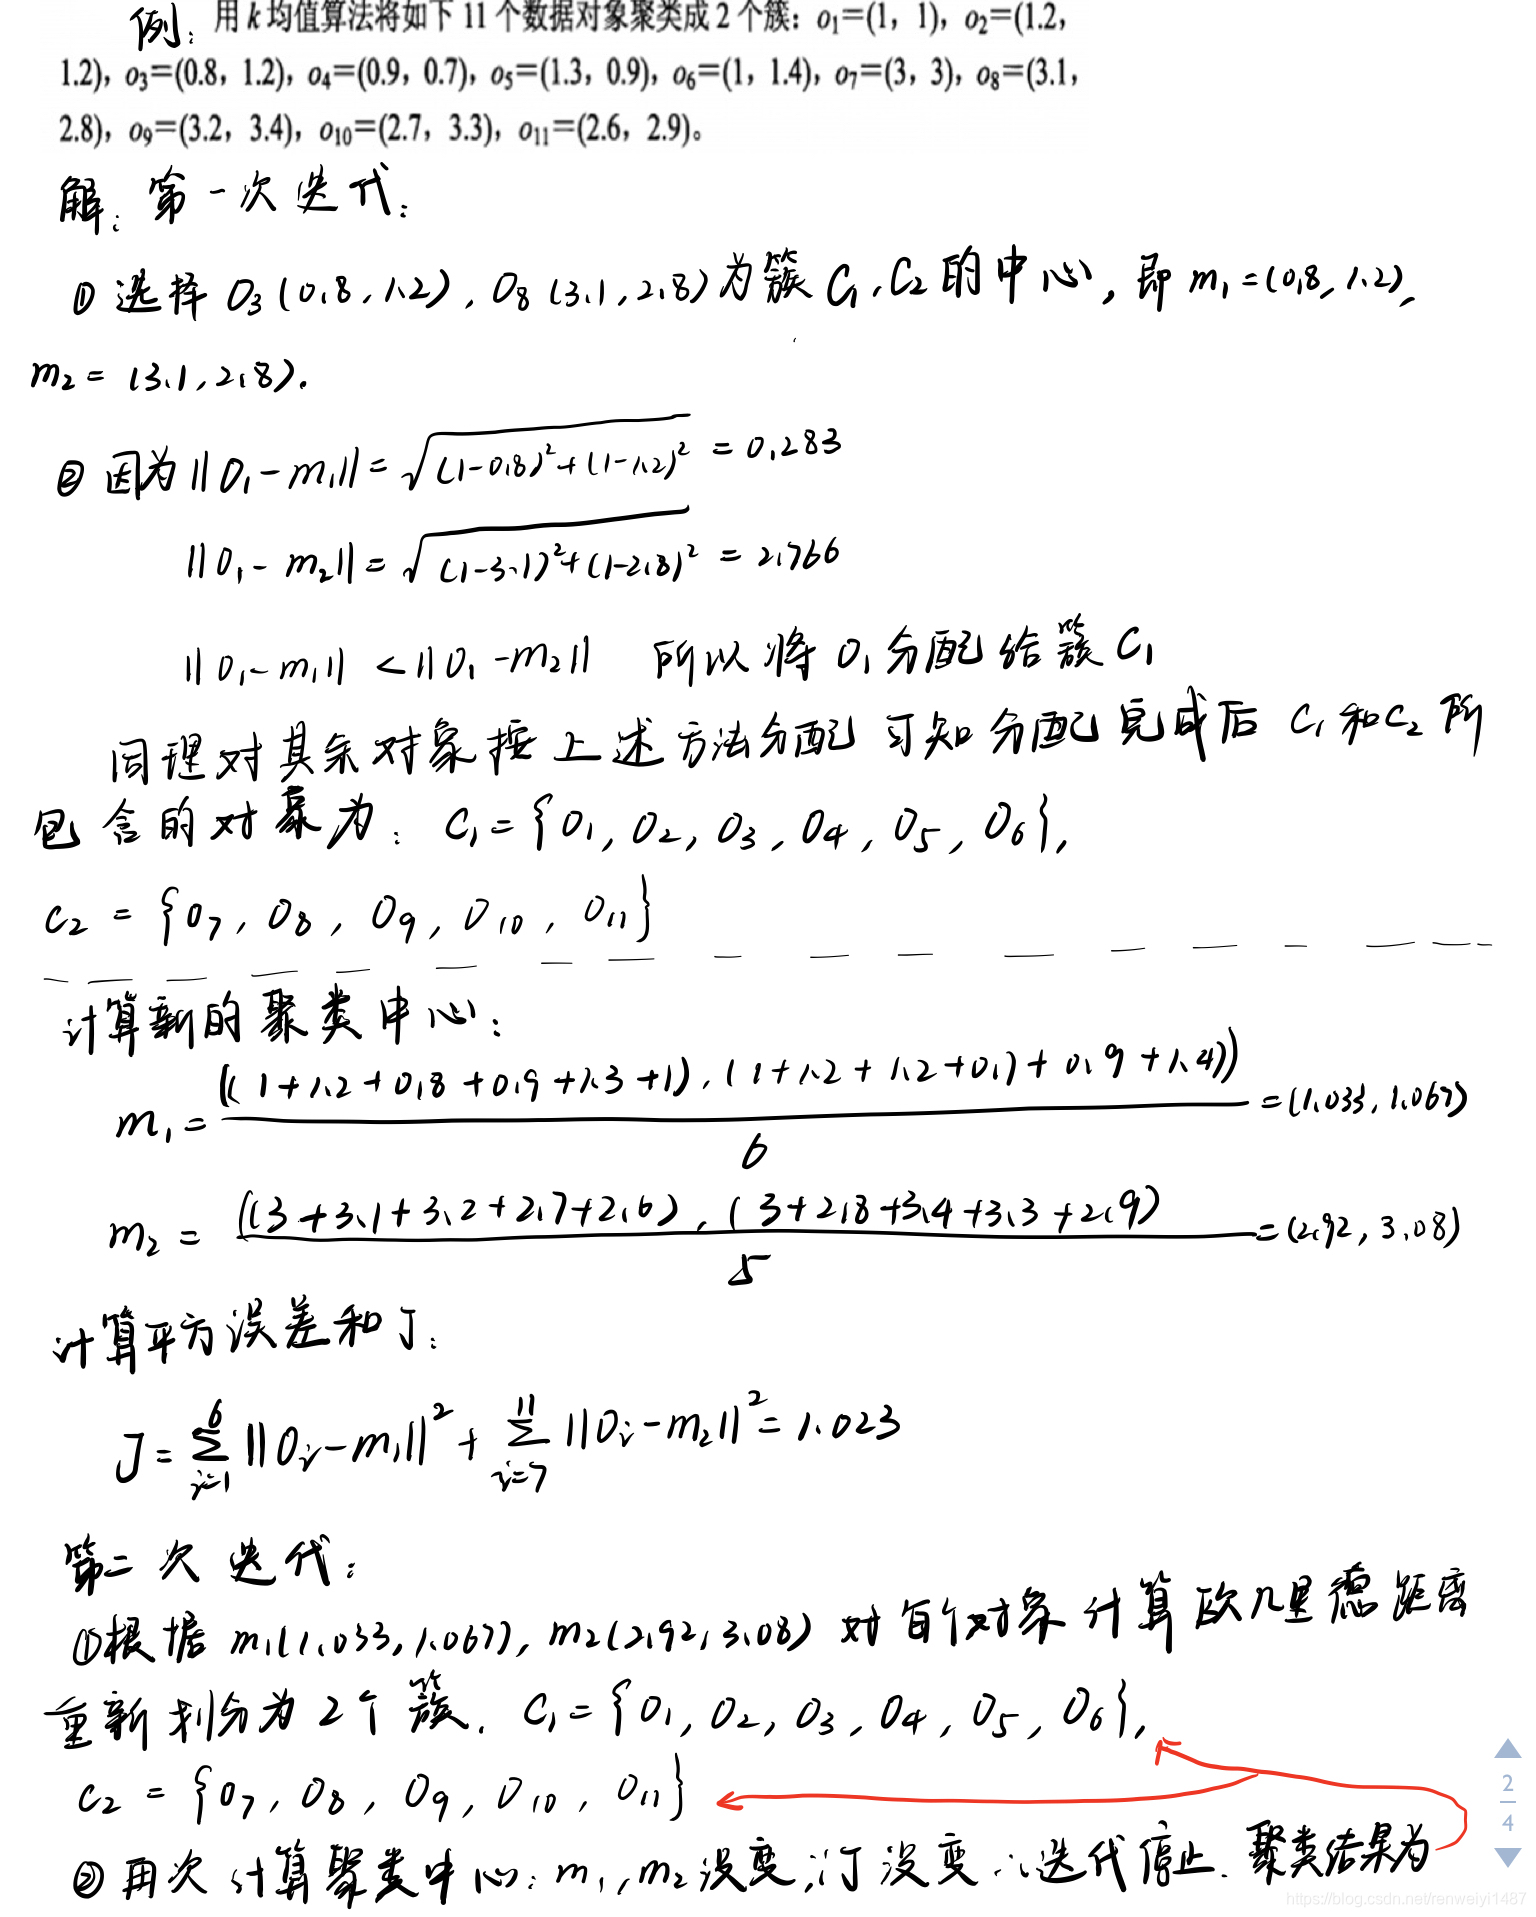 例: 用 k 均值算法将如下 11 个数据对象聚类成 2 个簇: o₁=(1, 1), o₂=(1.2,
1.2), o₃=(0.8, 1.2), o₄=(0.9, 0.7), o₅=(1.3, 0.9), o₆=(1, 1.4), o₇=(3, 3), o₈=(3.1,
2.8), o₉=(3.2, 3.4), o₁₀=(2.7, 3.3), o₁₁=(2.6, 2.9)。
解: 第一次迭代:
① 选择 O₃(0.8, 1.2), O₈(3.1, 2.8)为簇 C₁, C₂的中心, 即 m₁=(0.8, 1.2),
m₂ = (3.1, 2.8).
② 因为 ||O₁-m₁|| = √((1-0.8)²+(1-1.2)²) = 0.283
||O₁-m₂|| = √((1-3.1)²+(1-2.8)²) = 2.766
||O₁-m₁|| < ||O₁-m₂|| 所以将 O₁分配给簇 C₁
同理对其余对象按上述方法分配 可知分配完成后 C₁和C₂所
包含的对象为: C₁={O₁, O₂, O₃, O₄, O₅, O₆},
C₂ = {O₇, O₈, O₉, O₁₀, O₁₁}
计算新的聚类中心:
m₁ = ((1+1.2+0.8+0.9+1.3+1), (1+1.2+1.2+0.7+0.9+1.4)) / 6 = (1.033, 1.067)
m₂ = ((3+3.1+3.2+2.7+2.6), (3+2.8+3.4+3.3+2.9) / 5 = (2.92, 3.08)
计算平方误差和 J:
J = Σ_{i=1}^{6} ||O_i-m₁||² + Σ_{i=7}^{11} ||O_i-m₂||² = 1.023
第二次迭代:
①根据 m₁(1.033, 1.067), m₂(2.92, 3.08) 对每个对象计算欧几里德距离
重新划分为 2个簇. C₁={O₁, O₂, O₃, O₄, O₅, O₆},
C₂ = {O₇, O₈, O₉, O₁₀, O₁₁}
②再次计算聚类中心: m₁, m₂没变, J没变 ∴迭代停止. 聚类结果为
2
4
https://blog.csdn.net/renweiyi1487